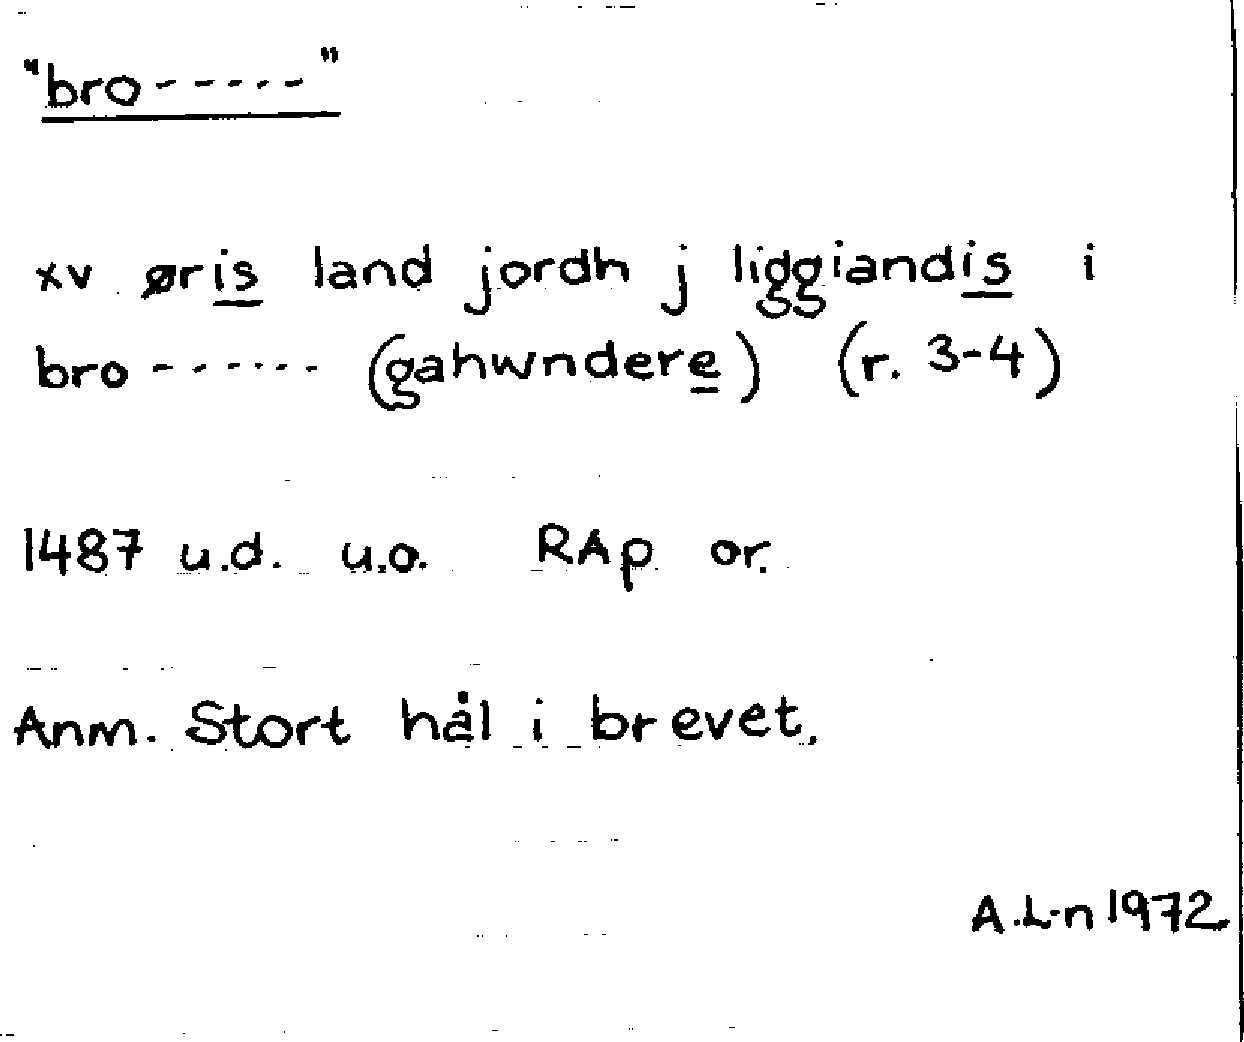 "bro-----"
xv øris land jordh j liggiandis i
bro ------ (gahwndere) (r. 3-4)
1487 u.d. u.o. RAp or.
Anm. Stort hål i brevet.
A.L-n 1972